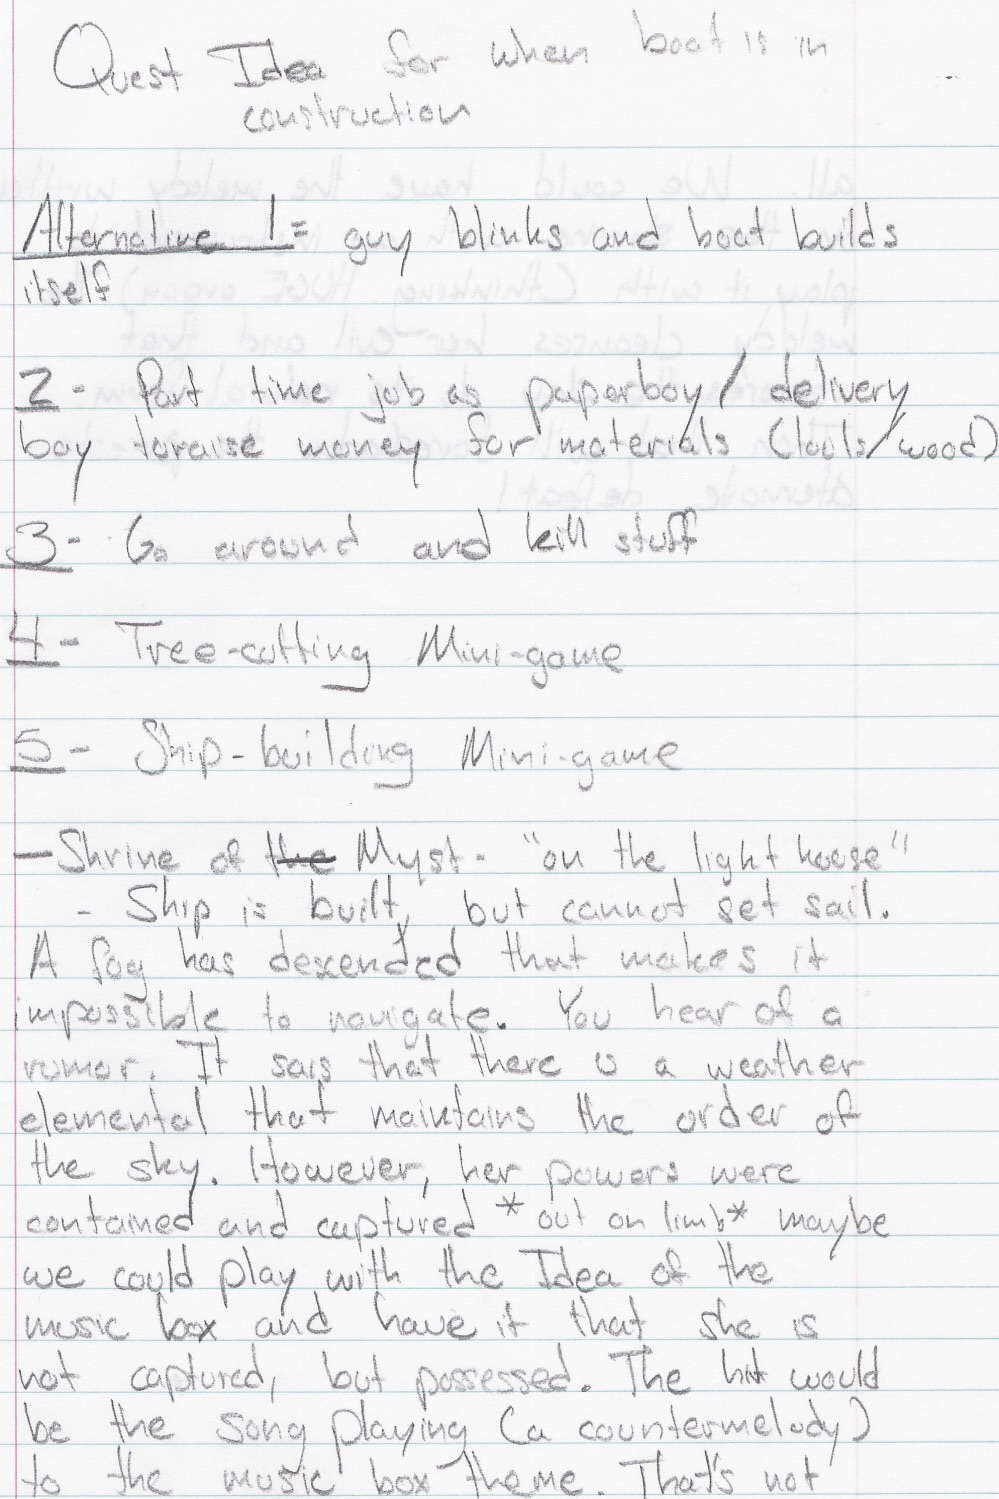 Quest Idea for when boat is in
construction
Alternative 1= guy blinks and boat builds
itself
2- Part time job as paperboy/delivery
boy toraise money for materials (tools/wood)
3- Go around and kill stuff
4- Tree-cutting Mini-game
5- Ship-building Mini-game
- Shrine of the Myst- "on the light house"
- Ship is built, but cannot set sail.
A fog has descended that makes it
impossible to navigate. You hear of a
rumor. It sais that there is a weather
elemental that maintains the order of
the sky. However, her powers were
contained and captured *out on limb* maybe
we could play with the Idea of the
music box and have it that she is
not captured, but possessed. The hit would
be the song playing (a countermelody)
to the music box theme. That's not